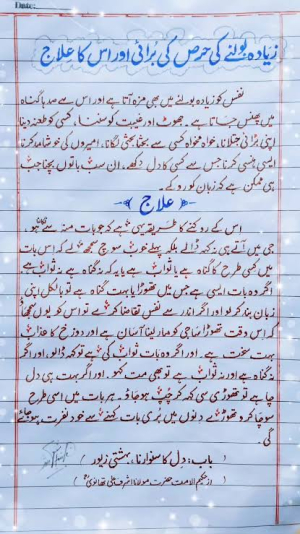 Date:
زیادہ بولنے کی حرص کی بُرائی اور اس کا علاج
نفس کو زیادہ بولنے میں بھی مزہ آتا ہے اور اس سے صدہا گناہ
میں پھنس جاتا ہے۔ جھوٹ اور غیبت کو سننا، کسی کو طعنہ دینا
اپنی بڑائی جتلانا، خواہ مخواہ کسی سے بحثا بحثی لگانا، امیروں کی خوشامد کرنا
ایسی ہنسی کرنا جس سے کسی کا دل دکھے۔ ان سب باتوں بچنا جب
ہی ممکن ہے کہ زبان کو روکے۔
علاج
اس کے روکنے کا طریقہ یہی ہے کہ جو بات منہ سے نکالنی ہو،
جی میں آتے ہی نہ کہہ ڈالے بلکہ پہلے خوب سوچ سمجھ لے کہ اس بات
میں کسی طرح کا گناہ ہے یا ثواب ہے یا یہ کہ نہ گناہ ہے نہ ثواب ہے
اگر وہ بات ایسی ہے جس میں تھوڑا یا بہت گناہ ہے تو بالکل اپنی
زبان بند کر لو اور اگر اندر سے نفس تقاضا کرے تو اس کو یوں سمجھاؤ
کہ اس وقت تھوڑا سا جی کو مار لینا آسان ہے اور دوزخ کا عذاب
بہت سخت ہے۔ اور اگر وہ بات ثواب کی ہے تو کہہ ڈالو، اور اگر
نہ گناہ ہے اور نہ ثواب ہے تو بھی مت کہو۔ اور اگر بہت ہی دل
چاہے تو تھوڑی سی کہہ کر چپ ہو جاؤ۔ ہر بات میں اسی طرح
سوچا کرو تھوڑے دنوں میں بُری بات کہنے سے خود نفرت ہو جائے
گی۔
( باب: دل کا سنوارنا، بہشتی زیور )
( از حکیم الامت حضرت مولانا اشرف علی تھانوی )